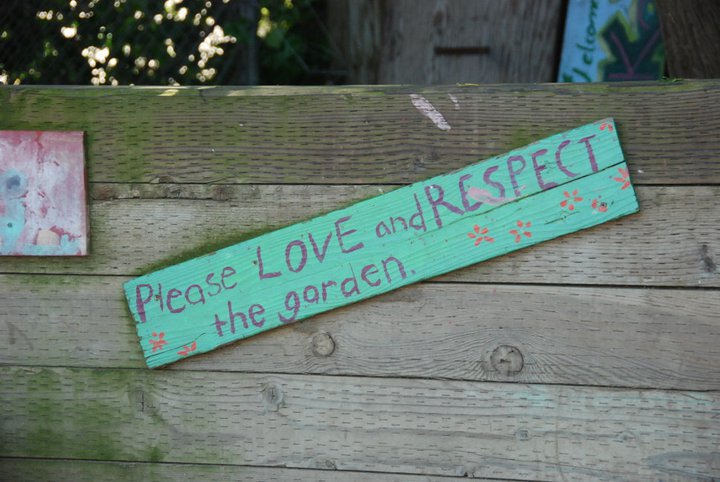 Welcome
Please LOVE and RESPECT
the garden.